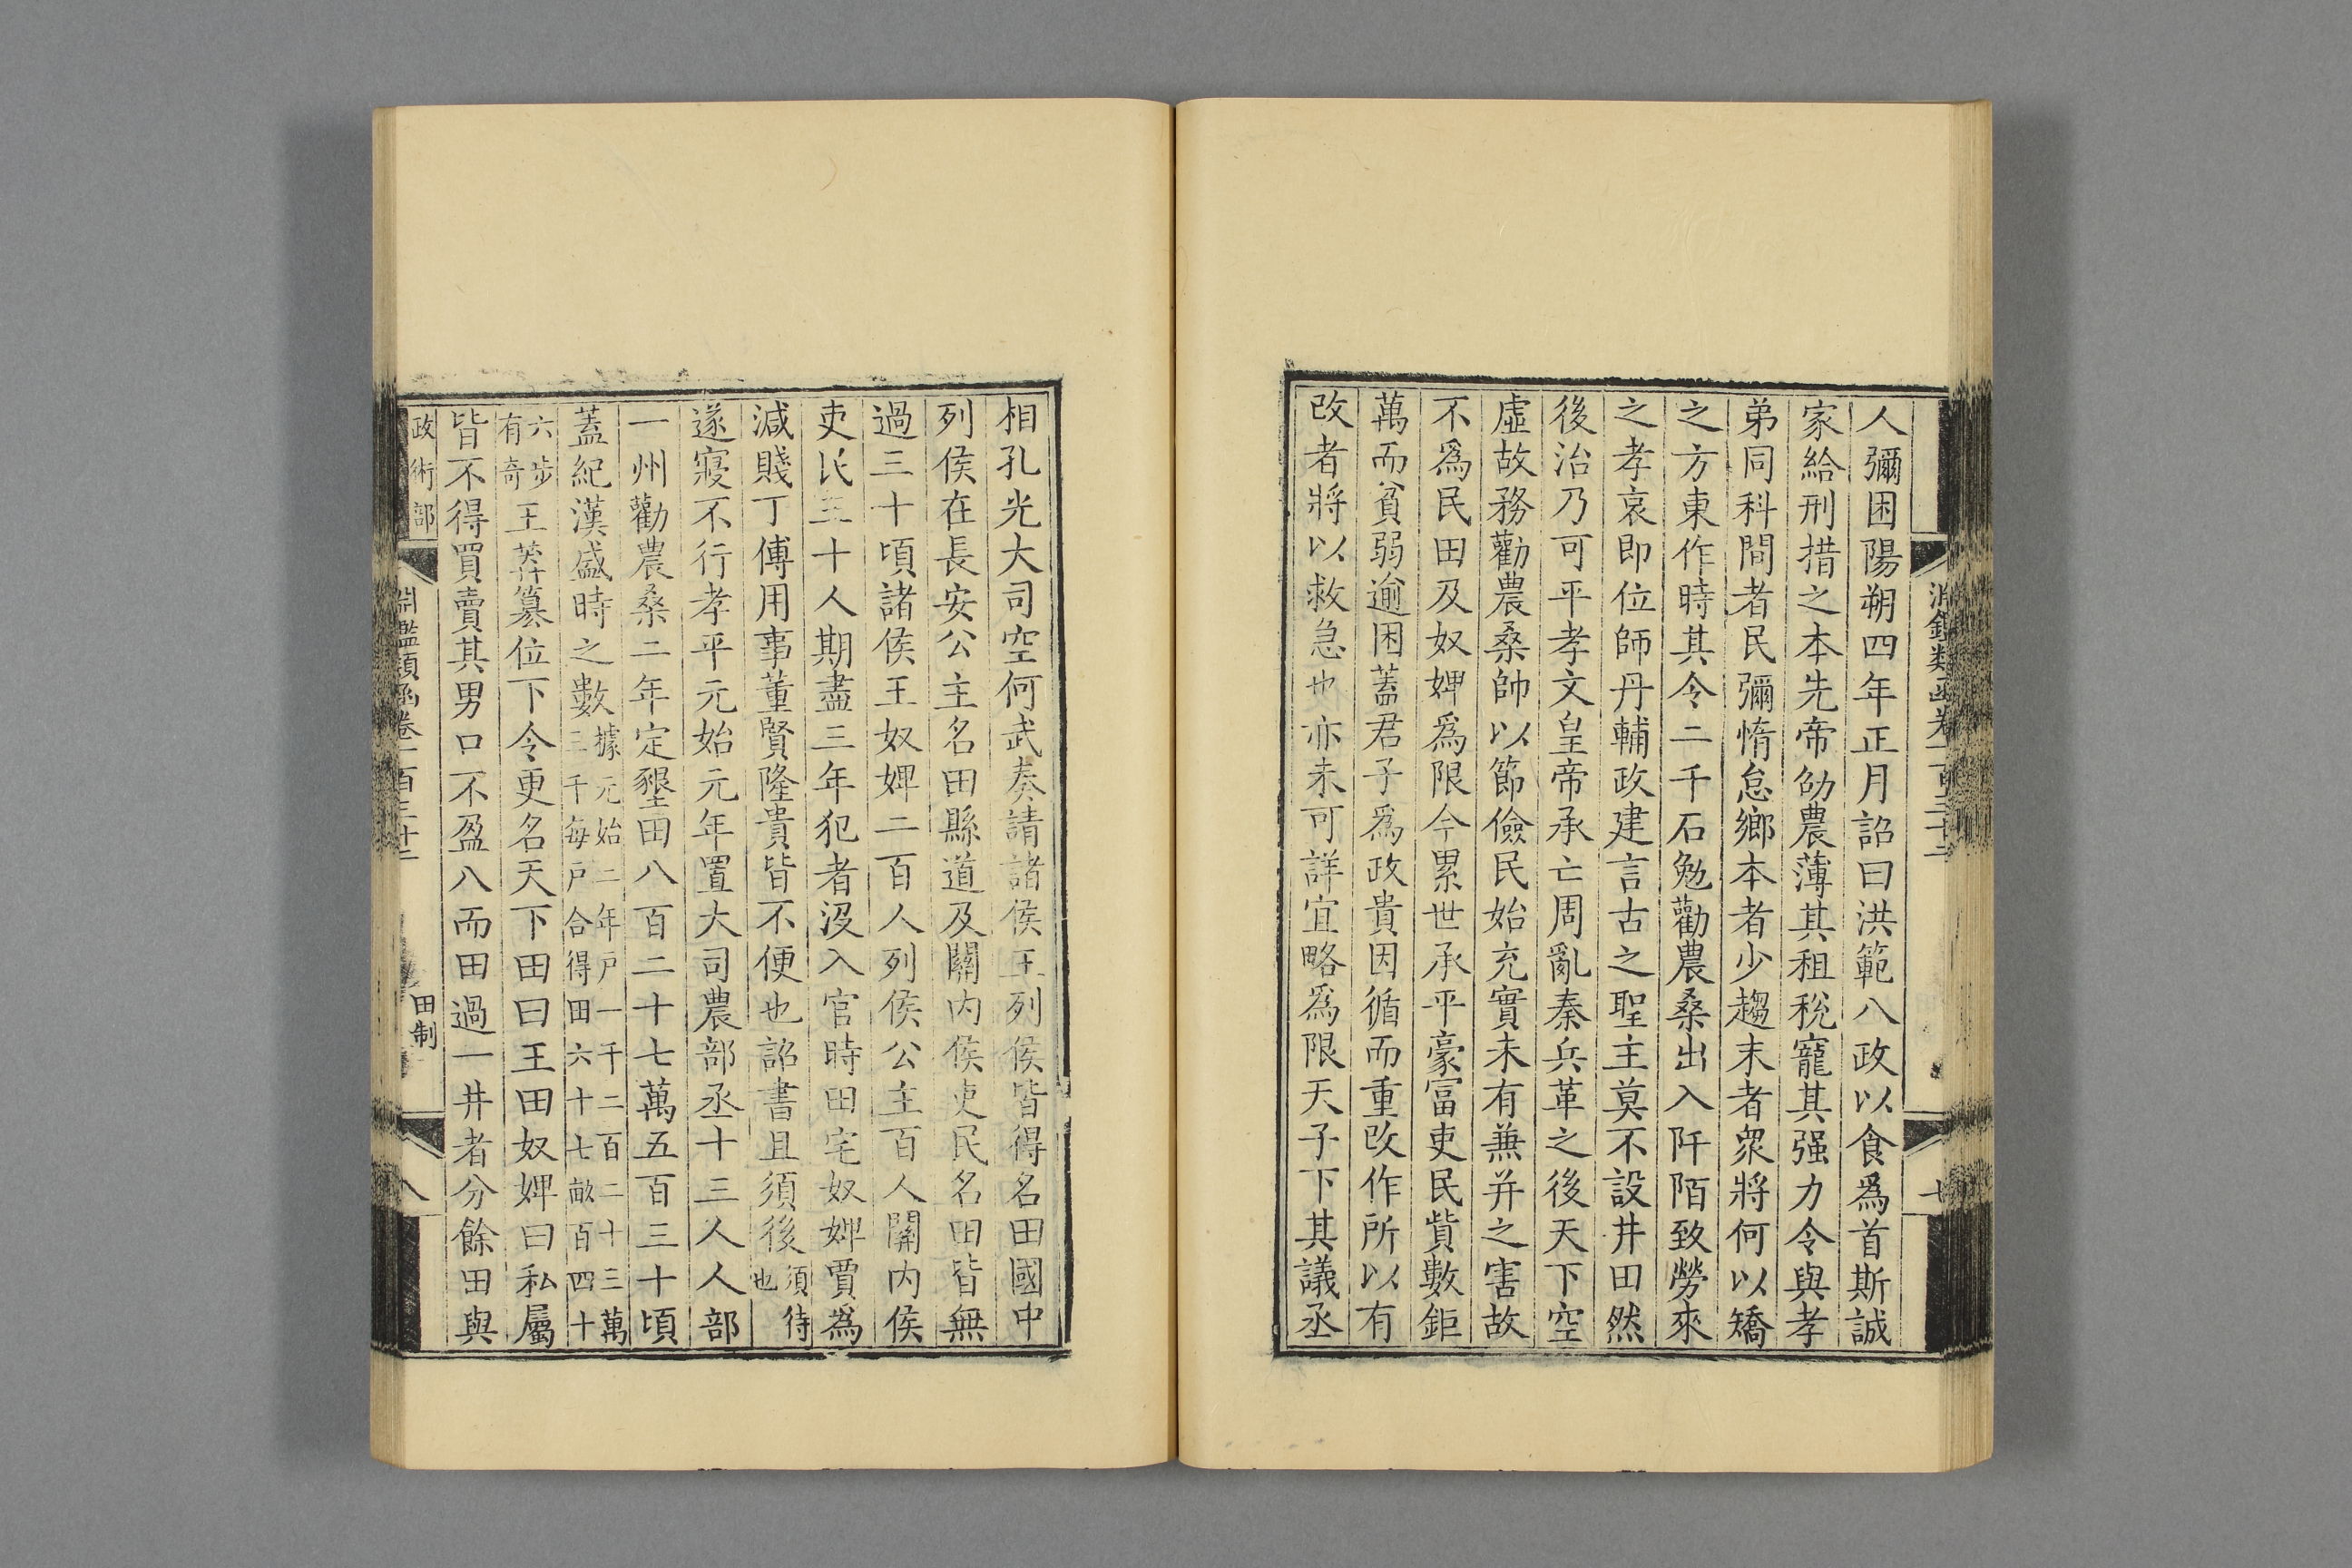 人彌困陽朔四年正月詔曰洪範八政以食爲首斯誠
家給刑措之本先帝劭農薄其租稅寵其强力令與孝
弟同科間者民彌惰怠鄉本者少趨末者衆將何以矯
之方東作時其令二千石勉勸農桑出入阡陌致勞來
之孝哀即位師丹輔政建言古之聖主莫不設井田然
後治乃可平孝文皇帝承亡周亂秦兵革之後天下空
虛故務勸農桑帥以節儉民始充實未有兼并之害故
不爲民田及奴婢爲限今累世承平豪冨吏民貲數鉅
萬而貧弱逾困蓋君子爲政貴因循而重改作所以有
改者將以救急也亦未可詳宜略爲限天子下其議丞
相孔光大司空何武奏請諸侯王列侯皆得名田國中
列侯在長安公主名田縣道及關内侯吏民名田皆無
過三十頃諸侯王奴婢二百人列侯公主百人關内侯
吏民三十人期盡三年犯者沒入官時田宅奴婢賈爲
減賤丁傅用事董賢隆貴皆不便也詔書且須後須待
也
遂寢不行孝平元始元年置大司農部丞十三人人部
一州勸農桑二年定墾田八百二十七萬五百三十頃
蓋紀漢盛時之數據元始二年戸一千二百二十三萬
三千每戸合得田六十七畝百四十
六步
有奇王莽簒位下令更名天下田曰王田奴婢曰私屬
皆不得買賣其男口不盈八而田過一井者分餘田與
政術部
淵鑑類函卷一百三十二
田制
八